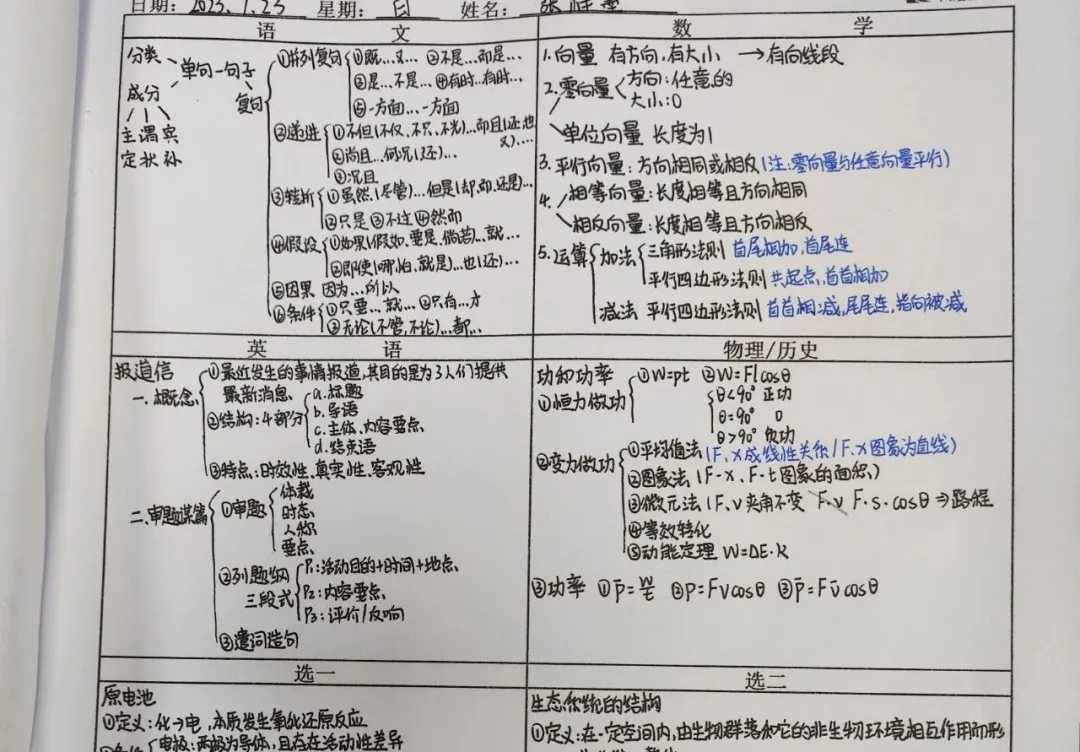 日期: 2023.1.23 星期: 日 姓名: 张
语 文
分类
单句-句子
成分
复句
主谓宾
定状补
①并列复句 ①既...又... ②不是...而是...
③是...不是... ④有时...有时...
⑤一方面...一方面
②递进 ①不但(不仅、不只、不光)...而且(还也
又)....
②尚且...何况(还)...
③况且
③转折 ①虽然(尽管)...但是(却,而,还是)...
②只是 ③不过 ④然而
④假设 ①如果(假如、要是、倘若)...就...
②即使(哪怕、就是)...也(还)...
⑤因果 因为...所以
⑥条件 ①只要...就... ②只有...才
③无论(不管,不论)...都...
数 学
1.向量 有方向,有大小 →有向线段
2.零向量 方向:任意的
大小:0
单位向量 长度为1
3.平行向量:方向相同或相反(注:零向量与任意向量平行)
4. 相等向量:长度相等且方向相同
相反向量:长度相等且方向相反
5.运算 加法 三角形法则 首尾相加,首尾连
平行四边形法则 共起点,首首相加
减法 平行四边形法则 首首相减,尾尾连,指向被减
英 语
报道信
一、概念 ①最近发生的事情报道,其目的是为了人们提供
最新消息
②结构:4部分 a.标题
b.导语
c.主体、内容要点
d.结束语
③特点:时效性、真实性、客观性
二、审题谋篇 ①审题 体裁
时态
人称
要点
②列题纲 P1:活动目的+时间+地点
三段式 P2:内容要点
P3:评价/反响
③遣词造句
物理/历史
功和功率 ①W=pt ②W=Flcosθ
①恒力做功 θ<90° 正功
θ=90° 0
θ>90° 负功
②变力做功 ①平均值法(F、x成线性关系/F、x图象为直线)
②图象法(F-x、F-t图象的面积)
③微元法(F、v夹角不变 F.v F·s·cosθ⇒路程
④等效转化
⑤动能定理 W=ΔE·k
③功率 ①p̄=W/t ②p=Fvcosθ ③p̄=Fv̄cosθ
选一
原电池
①定义:化→电,本质发生氧化还原反应
②条件 电极:两极为导体,且存在活动性差异
选二
生态系统的结构
①定义:在一定空间内,由生物群落和它的非生物环境相互作用而形